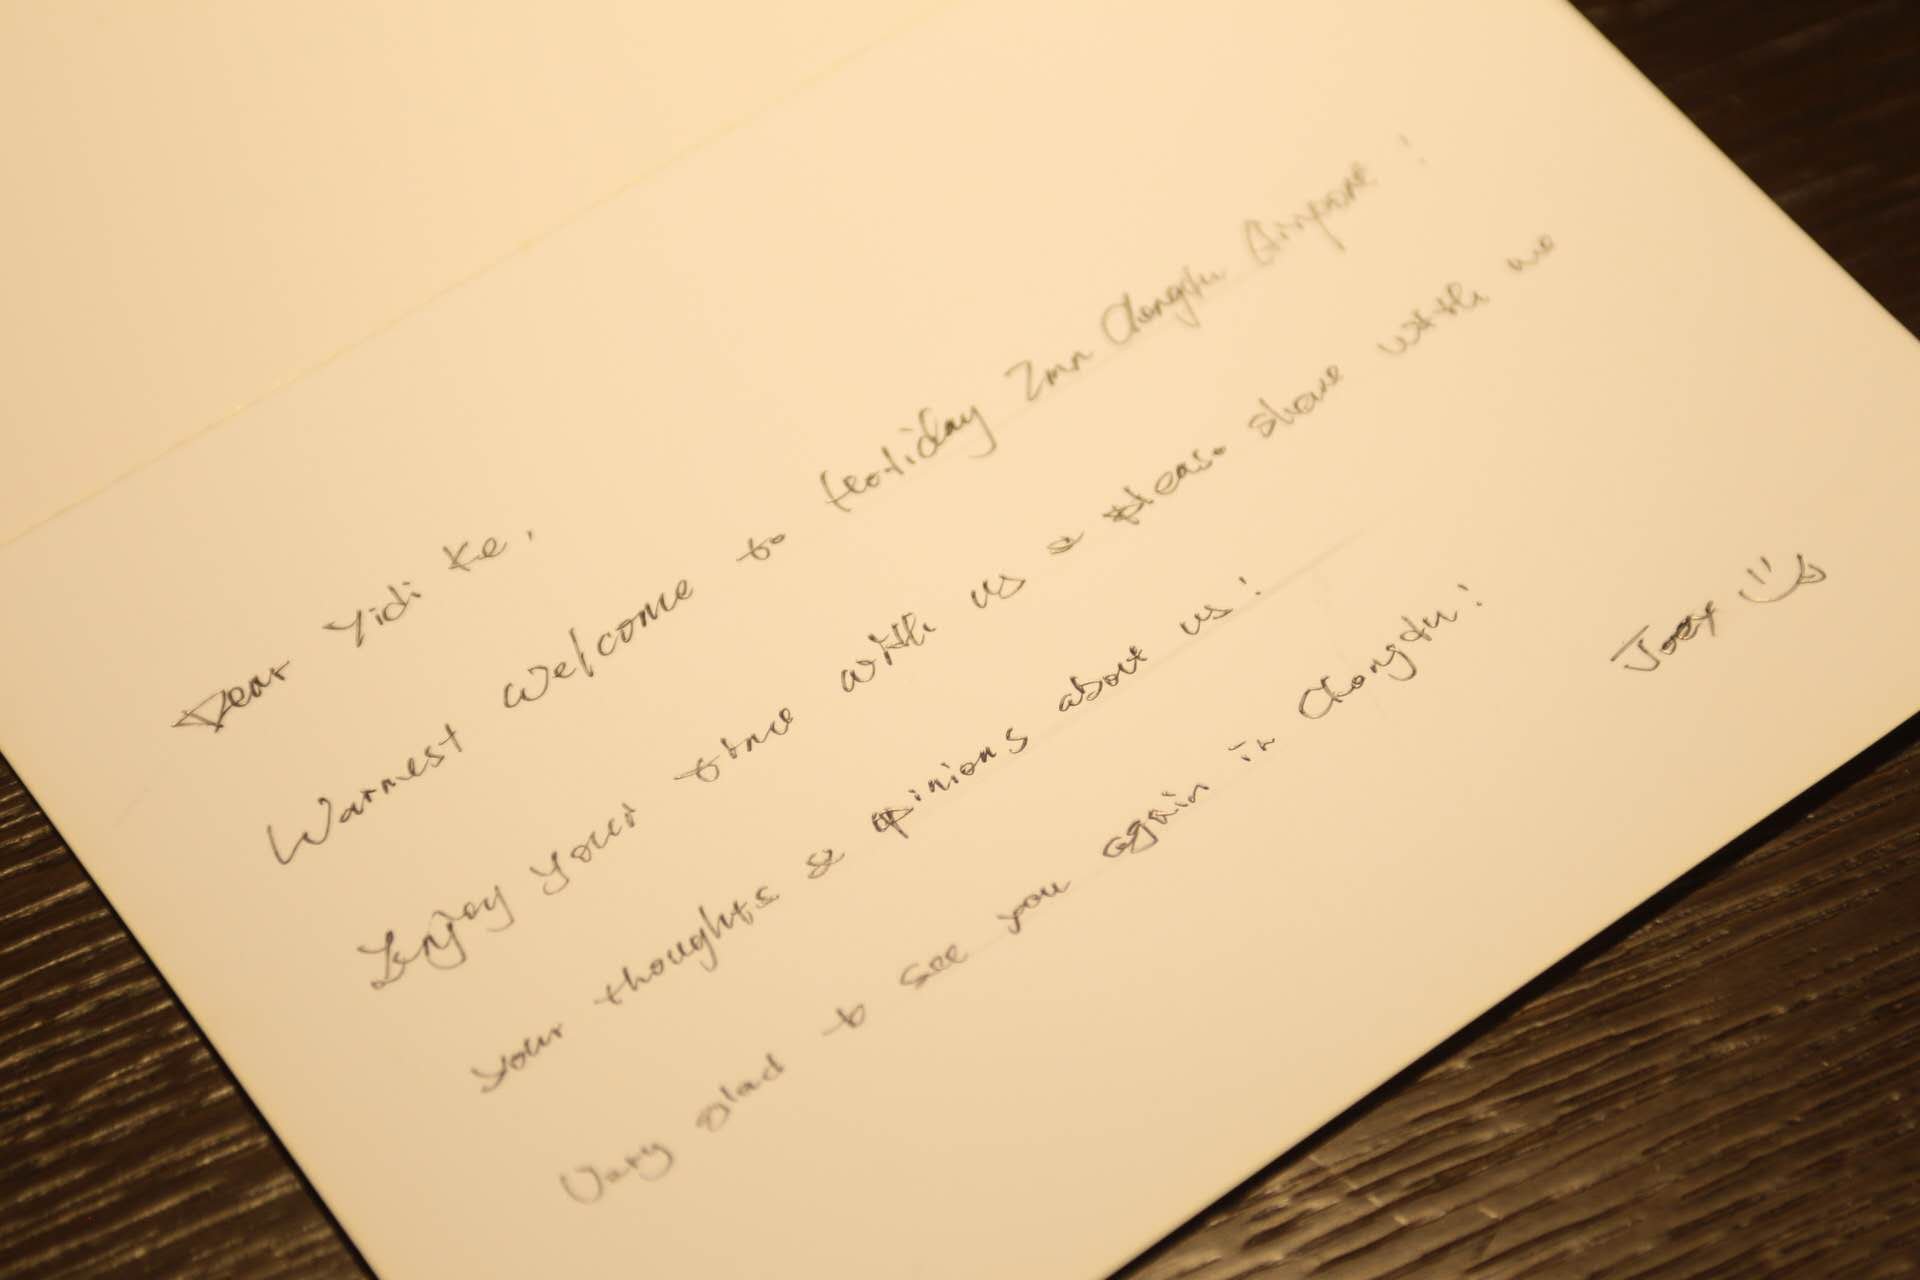 Dear Yidi Ke,
Warmest welcome to Holiday Inn Chengdu Airport!
Enjoy your time with us & please share with me
your thoughts & opinions about us!
Very glad to see you again in Chengdu!
Joey